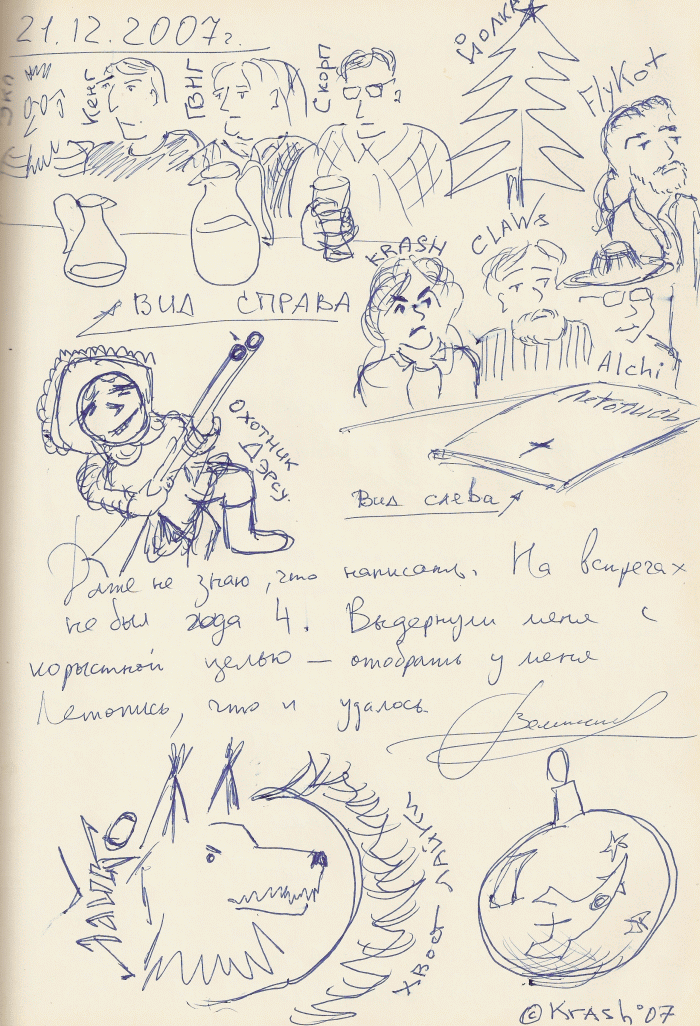 21.12.2007г.
Экл
Кенг
ГВНГ
Скорп
ЙОЛКА
FlyKot
KRASH
CLAWS
Alchi
ВИД СПРАВА
Летопись
ОХОТНИК
ДЭРСУ
Вид слева
Даже не знаю, что написать. На встречах
не был года 4. Выдернули меня с
корыстной целью — отобрать у меня
Летопись, что и удалось.
ХВОСТ ЛАЙКИ
© Krash'07